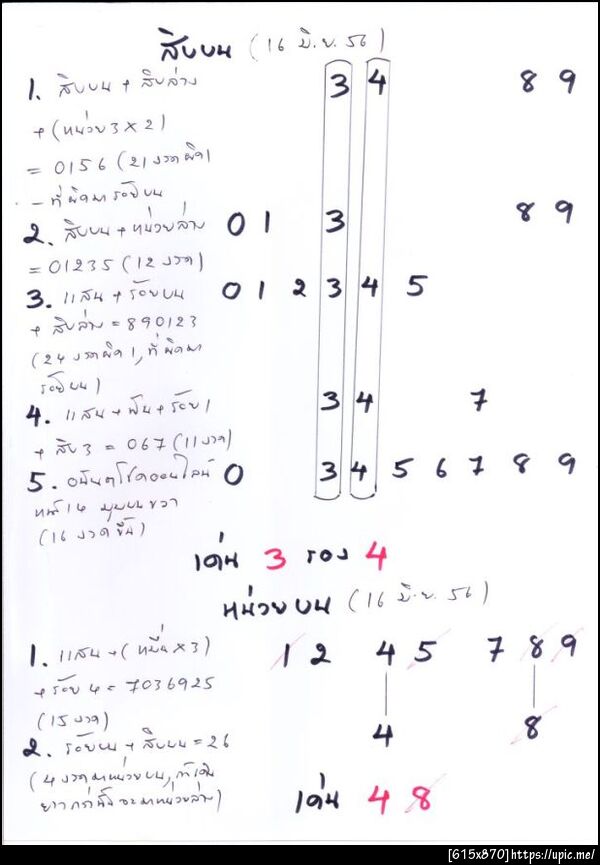 สิบบน (16 มิ.ย. 56)
1. สิบบน + สิบล่าง 3 4 8 9
+ (หน่วย 3 x 2)
= 0156 (21 งวดผิด 1
- ที่ผิดมาร้อยบน
2. สิบบน + หน่วยล่าง 0 1 3 8 9
= 01235 (12 งวด)
3. แสน + ร้อยบน 0 1 2 3 4 5
+ สิบล่าง = 890123
(24 งวดผิด 1, ที่ผิดมา
ร้อยบน)
4. แสน + พัน + ร้อย 1 3 4 7
+ สิบ 3 = 067 (11 งวด)
5. อนันตโชคออนไลน์ 0 3 4 5 6 7 8 9
หน้า 14 มุมบนขวา
(16 งวดขึ้น)
เด่น 3 รอง 4
หน่วยบน (16 มิ.ย. 56)
1. แสน + (หมื่น x 3) 1 2 4 5 7 8 9
+ ร้อย 4 = 7036925
(15 งวด) 4 8
2. ร้อยบน + สิบบน = 26
(4 งวดมาหน่วยบน,
เด่น 4 8
[615x870]https://upic.me/